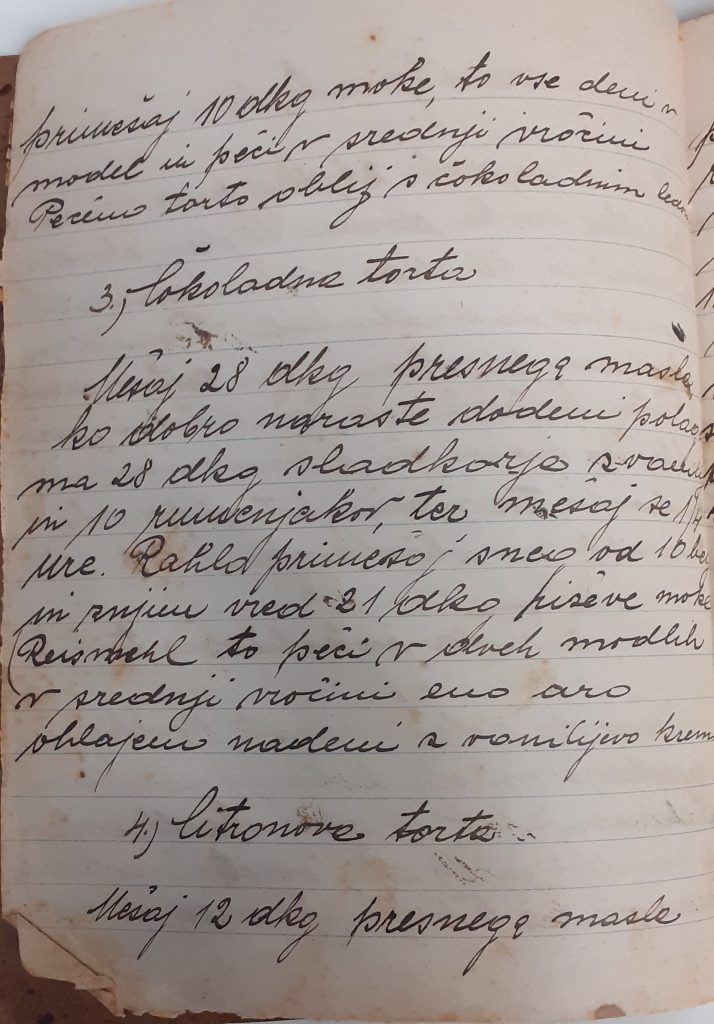 primešaj 10 dkg moke, to vse deni v
model in peči v srednji vročini
Pečeno torto oblij s čokoladnim
3.) Čokoladna torta
Mešaj 28 dkg presnega masla
ko dobro naraste dodeni polago
ma 28 dkg sladkorja z vanili
in 10 rumenjakov, ter mešaj še 1/4
ure. Rahlo primešaj sneg od 10 bel
in znjim vred 21 dkg riževe moke
(Reismehl to peči v dveh modlih
v srednji vročini eno uro
ohlajeno nadeni z vanilijevo kremo
4.) Citronova torta
Mešaj 12 dkg presnega masla